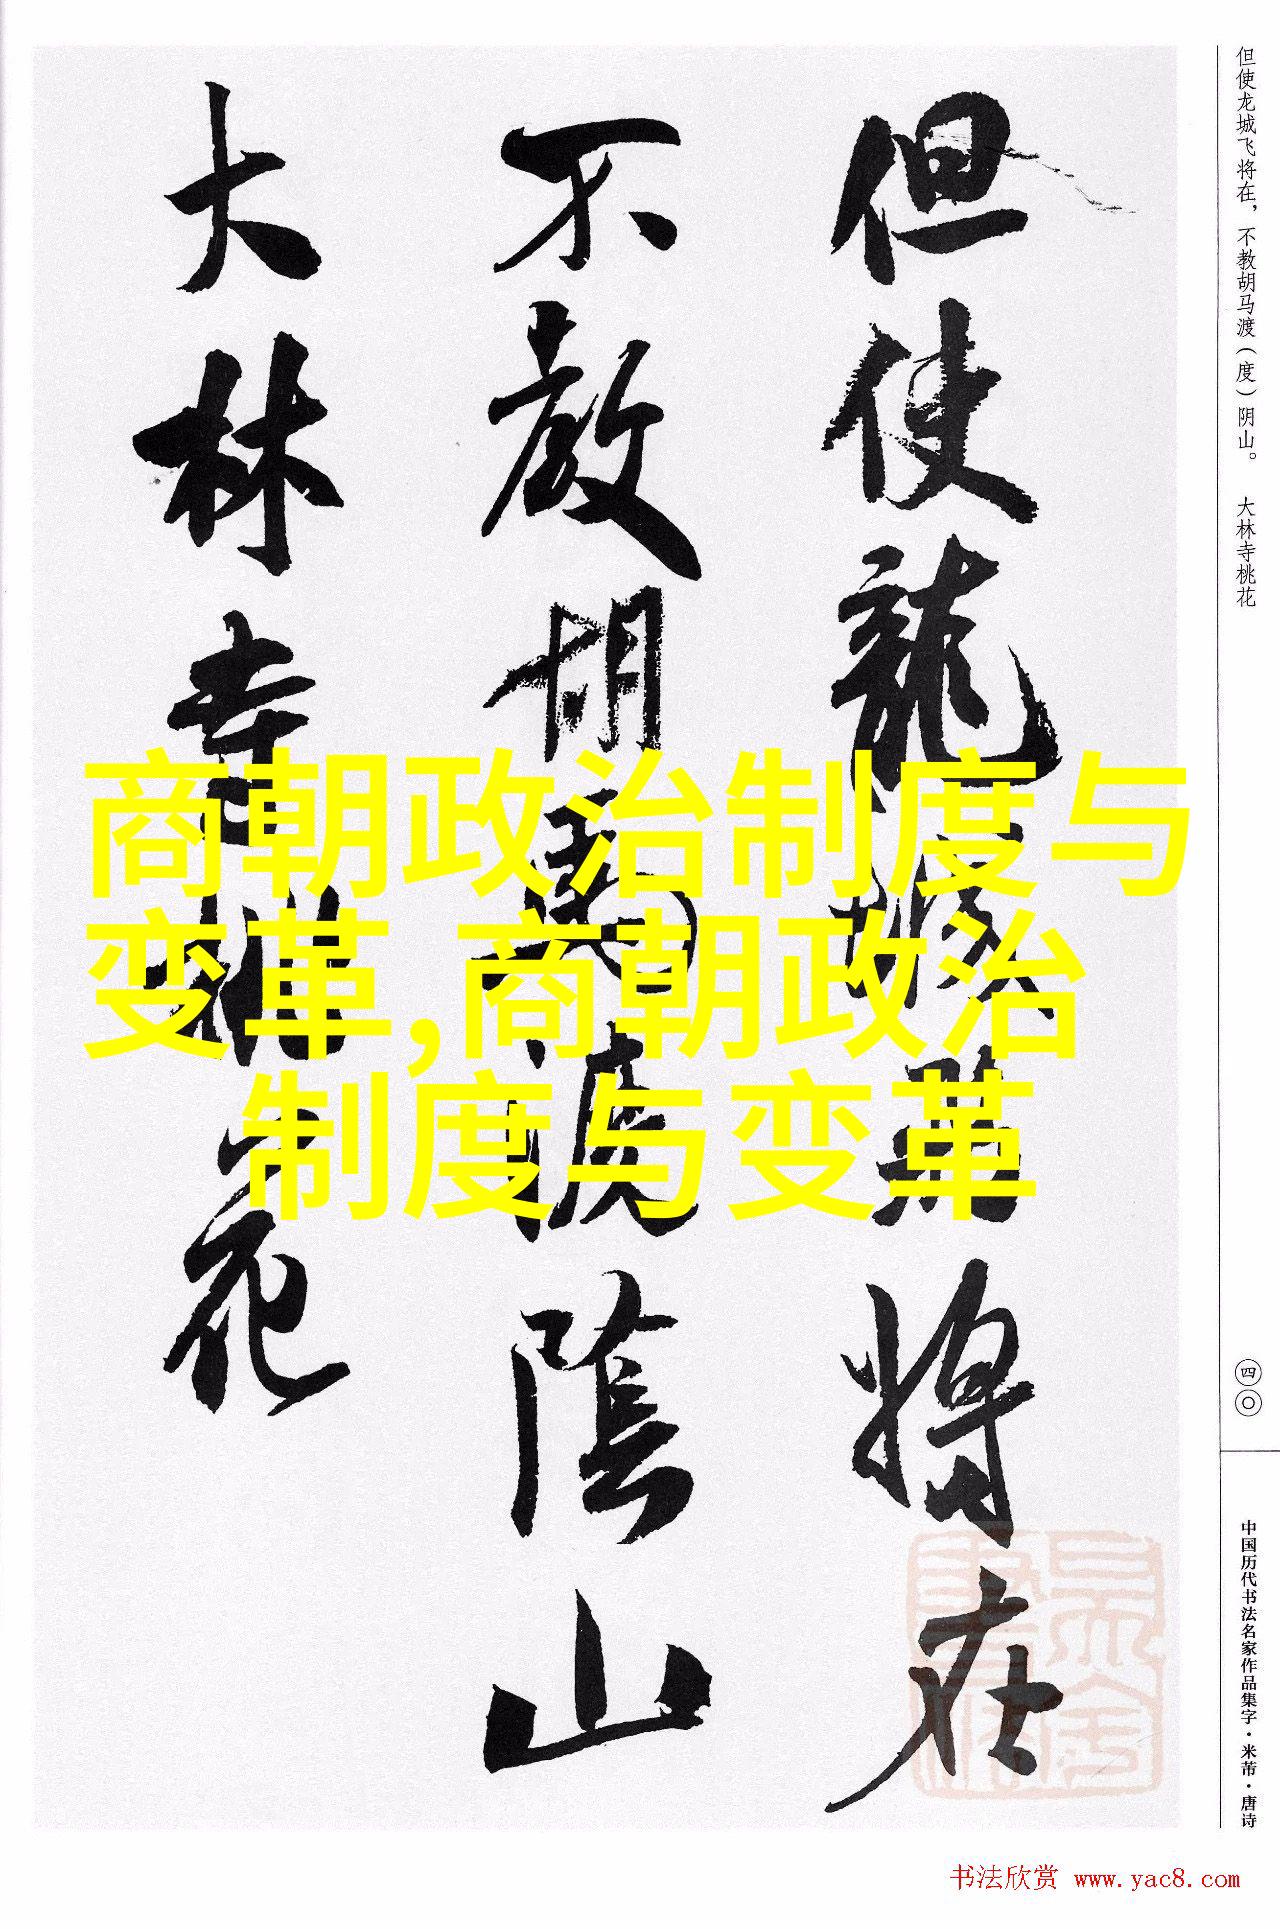 但使龙城飞将在，不教胡马渡（度）阴山。 大林寺桃花
但使龍城飛将在
不教胡馬渡陰山
大林寺桃花
商朝政治制度与
变革,商朝政治
制度与变革
四〇
中国历代书法名家作品集字·米芾·唐诗
书法欣赏 www.yac8.com